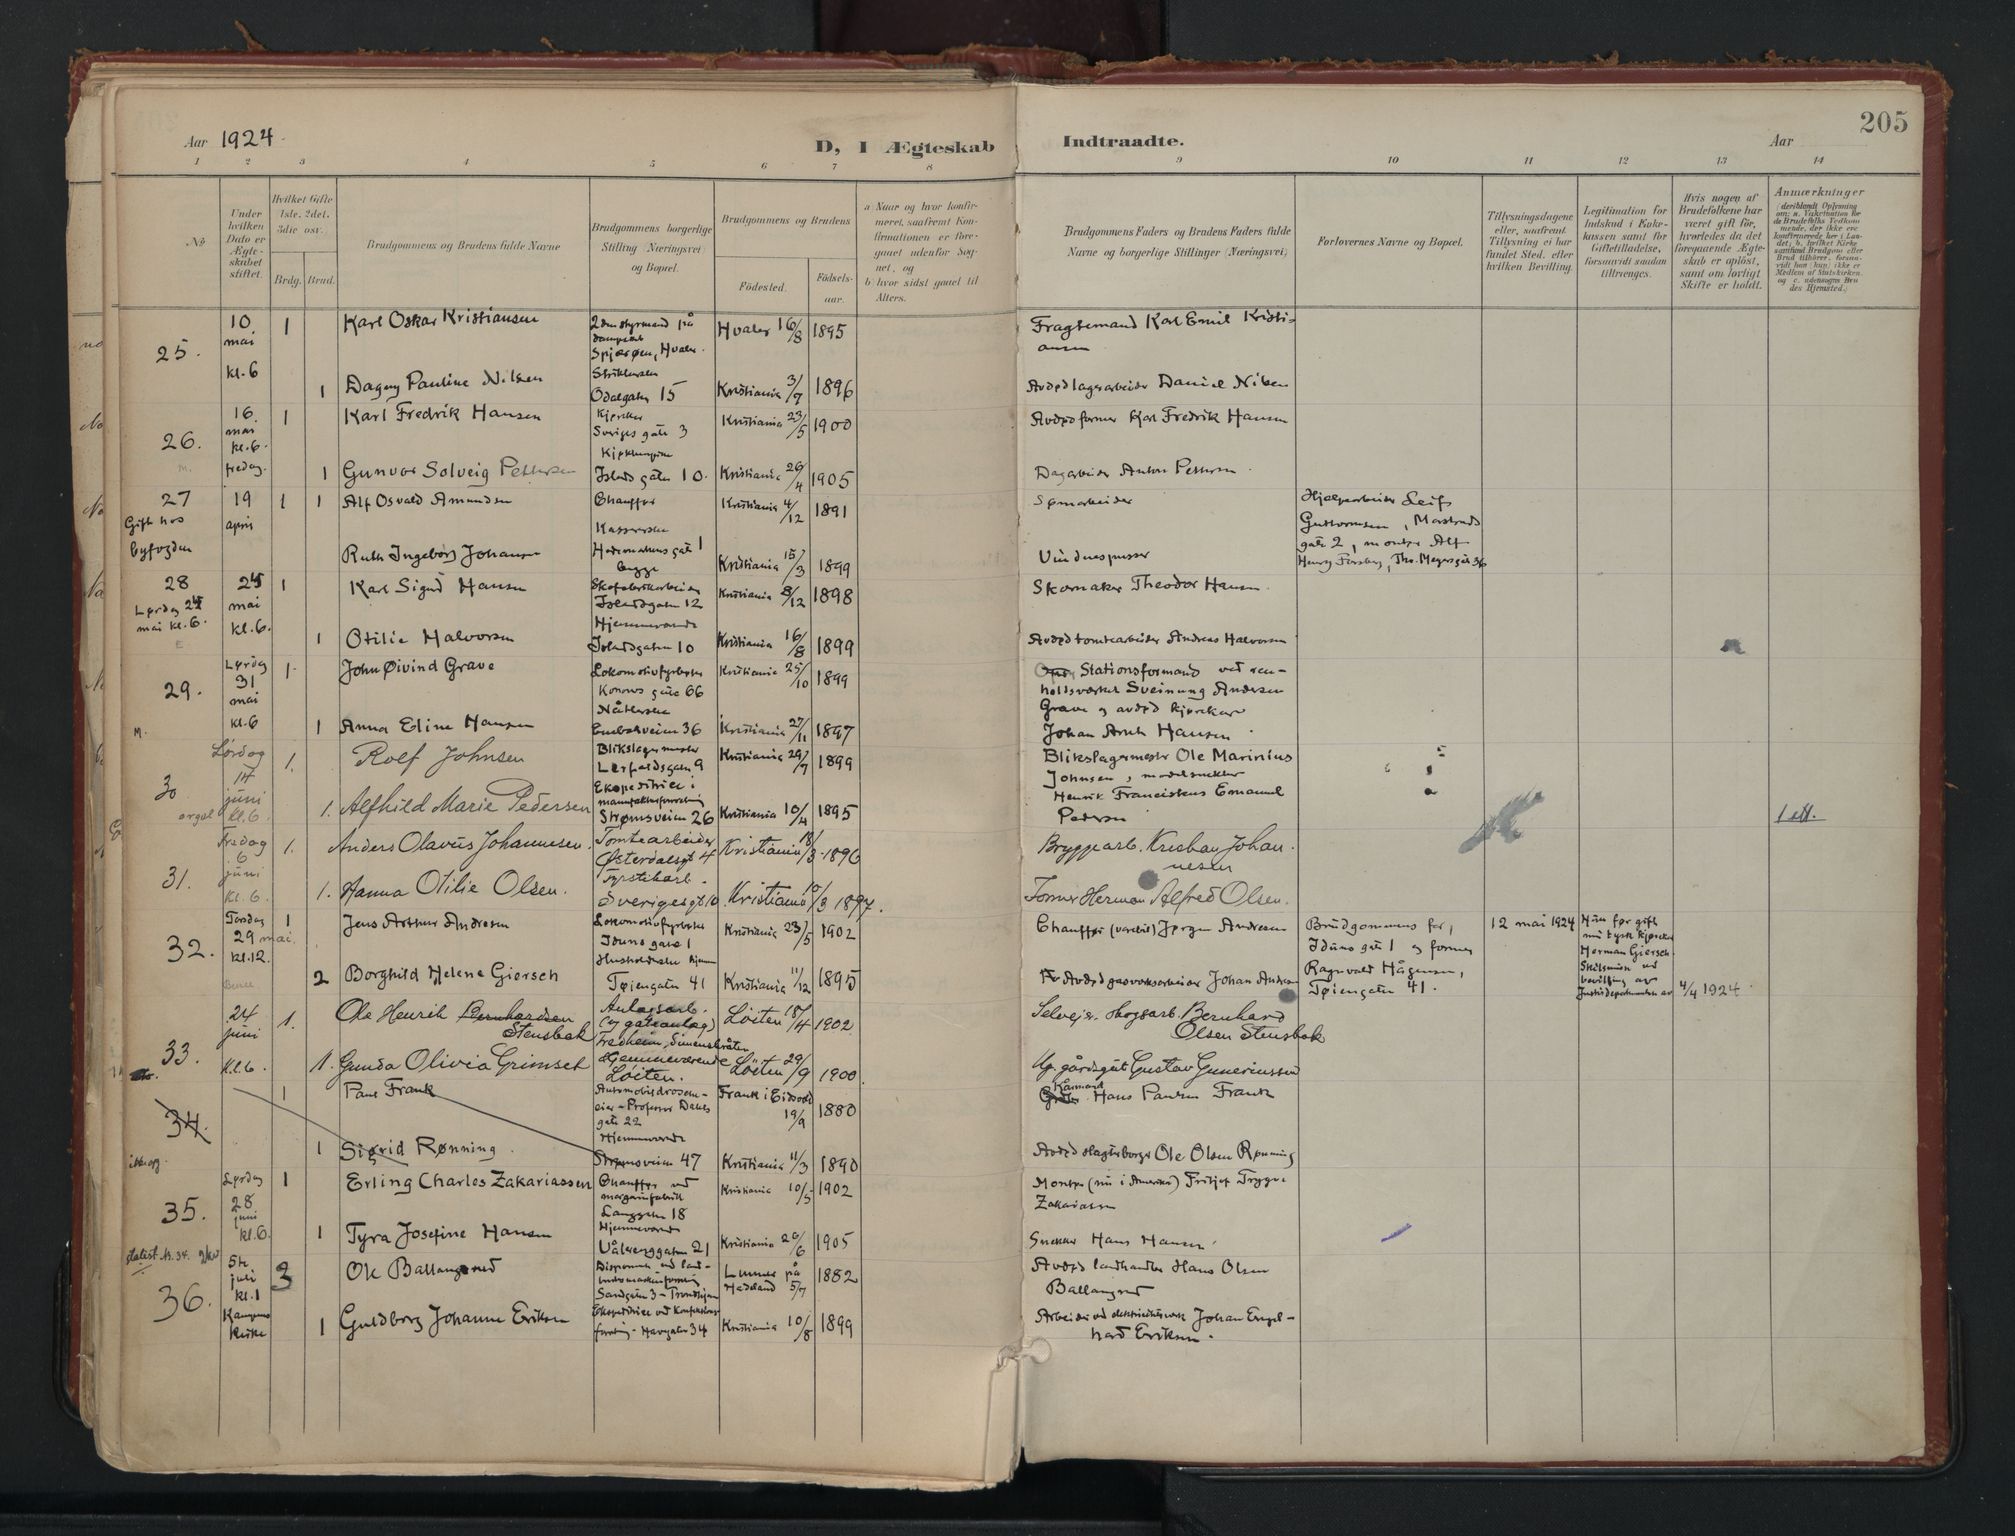 205
Aar 1924.
D, I Ægteskab Indtraadte.
Aar
1 2 3 4 5 6 7 8 9 10 11 12 13 14
No
Under hvilken Dato er Ægteskabet stiftet.
Hvilket Gifte 1ste, 2det, 3die osv.
Brdg. Brud.
Brudgommens og Brudens fulde Navne
Brudgommens borgerlige Stilling (Næringsvei) og Bopæl.
Brudgommens og Brudens
Fødested.
Fødselsaar.
a Naar og hvor konfirmeret, saafremt Konfirmationen er foregaaet udenfor Sognet, og
b hvor sidst gaaet til Alters.
Brudgommens Faders og Brudens Faders fulde Navne og borgerlige Stillinger (Næringsvei)
Forlovernes Navne og Bopæl.
Tillysningsdagene eller, saafremt Tillysning ei har fundet Sted, efter hvilken Bevilling.
Legitimation for Indskud i Enkekassen samt for Giftetilladelse, forsaavidt saadan tiltrænges.
Hvis nogen af Brudefolkene har været gift før, hvorledes da det foregaaende Ægteskab er opløst, samt om lovligt Skifte er holdt.
Anmærkninger
25. 10. mai kl. 6 1 Karl Oskar Kristiansen
2den styrmand på
Spjærøen, Hvaler.
Hvaler 16/8 1895
Fragtemand Karl Emil Kristiansen
1 Dagny Pauline Nilsen
Odalgaten 15
Kristiania 3/7 1896
Avdød lagerarbeider Daniel Nilsen
26. 16. mai kl. 6. fredag. 1 Karl Fredrik Hansen
Kjørker
Sveriges gate 3
Kristiania 23/5 1900
Avdød former Karl Fredrik Hansen
1 Gunvor Solveig Pettersen
Islands gaten 10.
Kristiania 26/4 1905
Dagarbeider Anton Pettersen
27 Gift hos byfogden
19 april 1 1 Alf Osvald Amundsen
Chauffør
Kristiania 4/12 1891
Hjelpearbeider Leif
gate 2, montør Alf
Ruth Ingeborg Johansen
Kassererske
begge
Kristiania 15/3 1899
Vinduespusser
Henry Forsberg, Thv. Meyersgate 36
28 Lørdag 24 mai kl. 6.
24 mai kl. 6. 1 Karl Sigurd Hansen
Skofabrikarbeider
Islandsgaten 12
Kristiania 8/12 1898
Skomaker Theodor Hansen
1 Otilie Halvorsen
Hjemmeværende
Islandsgaten 10
Kristiania 16/8 1899
Avdød tomtearbeider Andreas Halvorsen
29. M.
Lørdag 31 mai kl. 6 1 John Øivind Grave
Lokomotivfyrbøter
Konows gate 66
Kristiania 25/10 1899
Stationsformand ved renholdsverket Sveinung Andersen
Grave og avdød kjørekar
1 Anna Eline Hansen
Enebakveien 36
Kristiania 27/11 1897
Johan Arnt Hansen
30 orgel
Lørdag 14 juni kl. 6. 1. Rolf Johnsen
Blikslagermester
Lerfaldsgaten 9
Kristiania 29/7 1899
Blikslagermester Ole Marinius
Johnsen, modelsnekker
1. Alfhild Marie Pedersen
Ekspeditrice i
manufakturforretning
Strømsveien 26
Kristiania 10/4 1895
Henrik Franciskus Emanuel
Pedersen
1 ett.
31. Fredag 6 juni kl. 6. 1. Anders Olavus Johannesen.
Tomtearbeider
Østerdalsgt 4
Kristiania 18/3 1896
Bryggearb. Kristian Johannesen
1. Hanna Otilie Olsen.
Fyrstikarb.
Sverigesgt 10.
Kristiania 10/3 1897.
Former Herman Alfred Olsen.
32. Torsdag 29 mai. kl. 12. 1 Jens Arthur Andresen
Lokomotivfyrbøter
Iduns gate 1
Kristiania 23/5 1902
Chauffør Jørgen Andresen
Brudgommens far,
Iduns gate 1 og former
Ragnvald Hågensen,
Tøiengaten 41.
12 mai 1924
Hun før gift
Herman Giersch.
Skilsmisse ved
bevilling av
Justisdepartementet av 4/4 1924
2 Borghild Helene Giersch
Tøiengaten 41
Kristiania 11/12 1895
Avdød gasverksarbeider Johan Andresen
33. 24 juni Kl. 6. 1. Ole Henrik Bernhardsen
Stensbak
Anlægsarb.
Løiten 18/4 1902
Selveier, skogsarb. Bernhard
Olsen Stensbak
1. Gunda Olivia Grimset
Hjemmeværende
Løiten.
Løiten 29/9 1900.
Gustav Guneriussen
34. ikke og.
1 Paul Frank
Automobildroscheeier – Professor Dahls
gate 22
Frank i Eidsvold 19/9 1880
Hans Paulsen Frank
1 Sigrid Rønning
Hjemmeværende
Strømsveien 47
Kristiania 11/3 1890
Avdød slagterborger Ole Olsen Rønning
35. Lørdag 28 juni kl. 6. 1 Erling Charles Zakariassen
Chauffør ved
margarinfabrik
Langgaten 18
Kristiania 10/5 1902
Montør (nu i Amerika) Fritjof Trygve
Zakariassen
1 Tyra Josefine Hansen
Hjemmeværende
Vålerenggaten 21
Kristiania 26/6 1905
Snekker Hans Hansen
36. 5te juli kl. 1 Kampens kirke
3 Ole Ballangrud
Disponent ved landbruksmaskinforretning
Sandgaten 3 – Trondhjem
Lunner på Hadeland 5/7 1882
Avdød landhandler Hans Olsen
Ballangrud
1 Guldborg Johanne Eriksen
Ekspeditrice ved konfektionsforretning – Havgaten 34
Kristiania 10/8 1899
Arbeider ved elektricitetsverk Johan Engelhard Eriksen.